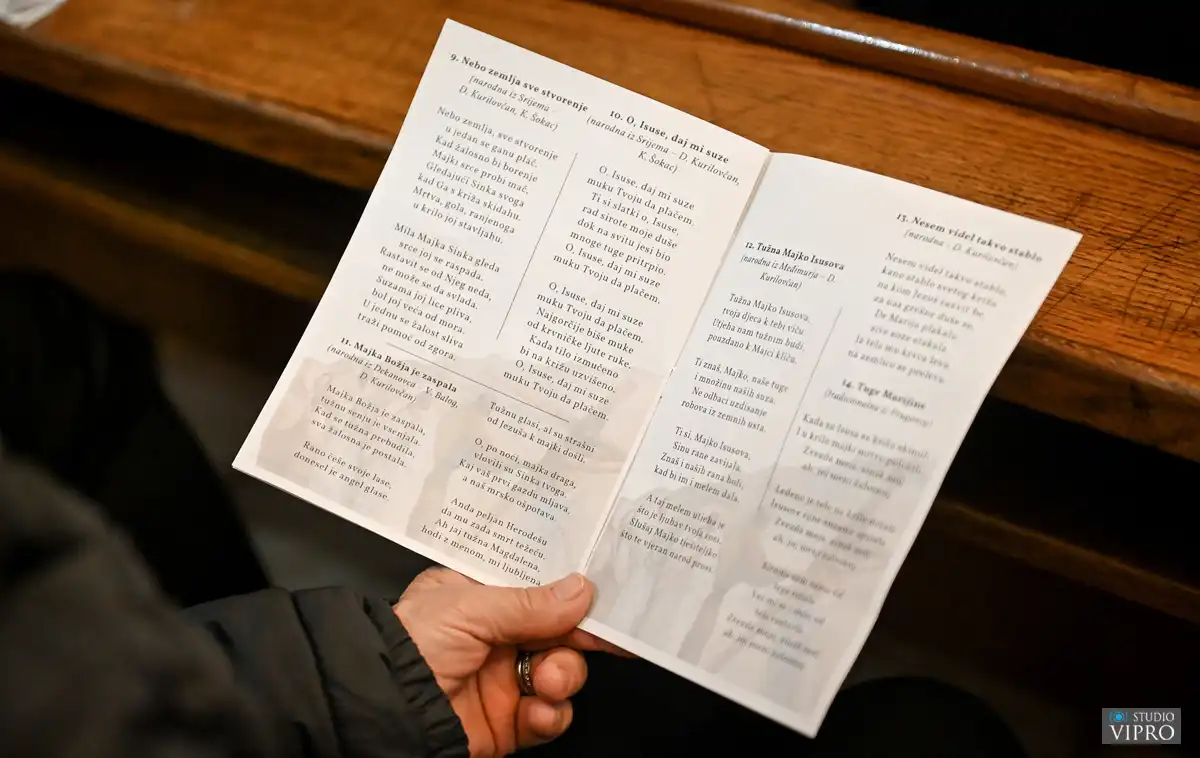 9. Nebo zemlja sve stvorenje
(narodna iz Srijema
D. Kurilovčan, K. Šokac)
Nebo zemlja, sve stvorenje
u jedan se ganu plač.
Kad žalosno bi borenje
Majki srce probi mač,
Gledajući Sinka svoga
kad Ga s križa skidahu.
Mrtva, gola, ranjenoga
u krilo joj stavljahu.
Mila Majka Sinka gleda
srce joj se raspada.
Rastavit se od Njeg neda,
ne može se da svlada.
Suzama joj lice pliva,
bol joj veća od mora.
U jednu se žalost sliva
traži pomoć od zgora.
10. O, Isuse, daj mi suze
(narodna iz Srijema – D. Kurilovčan,
K. Šokac)
O, Isuse, daj mi suze
muku Tvoju da plačem.
Ti si slatki o, Isuse,
rad sirote moje duše
dok na svitu jesi bio
mnoge tuge pritrpio.
O, Isuse, daj mi suze
muku Tvoju da plačem.
O, Isuse, daj mi suze
muku Tvoju da plačem.
Najgorčije biše muke
od krvničke ljute ruke.
Kada tilo izmučeno
bi na križu uzvišeno.
O, Isuse, daj mi suze
muku Tvoju da plačem.
11. Majka Božja je zaspala
(narodna iz Dekanovca – V. Balog,
D. Kurilovčan)
Majka Božja je zaspala,
tužnu senju je vsenjala.
Kad se tužna prebudila,
sva žalosna je postala.
Rano češe svoje lase,
donesel je angel glase.
Tužnu glasi, al su strašni
od Jezuša k majki došli.
O, po noći, majka draga,
vlovili su Sinka tvoga.
Kaj vaš prvi gazdu mljava,
a naš mrsko ospotava.
Anda peljan Herodešu
da mu zada smrt težeću.
Ah jaj tužna Magdalena,
hodi z menom, mi ljubljena.
12. Tužna Majko Isusova
(narodna iz Međimurja – D.
Kurilovčan)
Tužna Majko Isusova,
tvoja djeca k tebi viču
Utjeha nam tužnim budi,
pouzdano k Majci kliču.
Ti znaš, Majko, naše tuge
i množinu naših suza.
Ne odbaci uzdisanje
robova iz zemnih usta.
Ti si, Majko Isusova,
Sinu rane zavijala,
Znaš i naših rana boli,
kad bi im i melem dala.
A taj melem utjeha je
što je ljubav tvoja rosi.
Slušaj Majko tješiteljko
što te vjeran narod prosi.
13. Nesem videl takvo stablo
(narodna – D. Kurilovčan)
Nesem videl takvo stablo,
kano stablo svetog križa
na kom Jezuš razvit be
za nas grešne duše se.
De Marija plakala
sive suze stakala
Je telo mu krvca
na zemlicu se preleva.
14. Tuge Marijine
(tradicionalna iz Dragovije)
Kada su Isusa sa križa skinuli,
I u krilo majki mrtva položili,
STUDIO
VIPRO